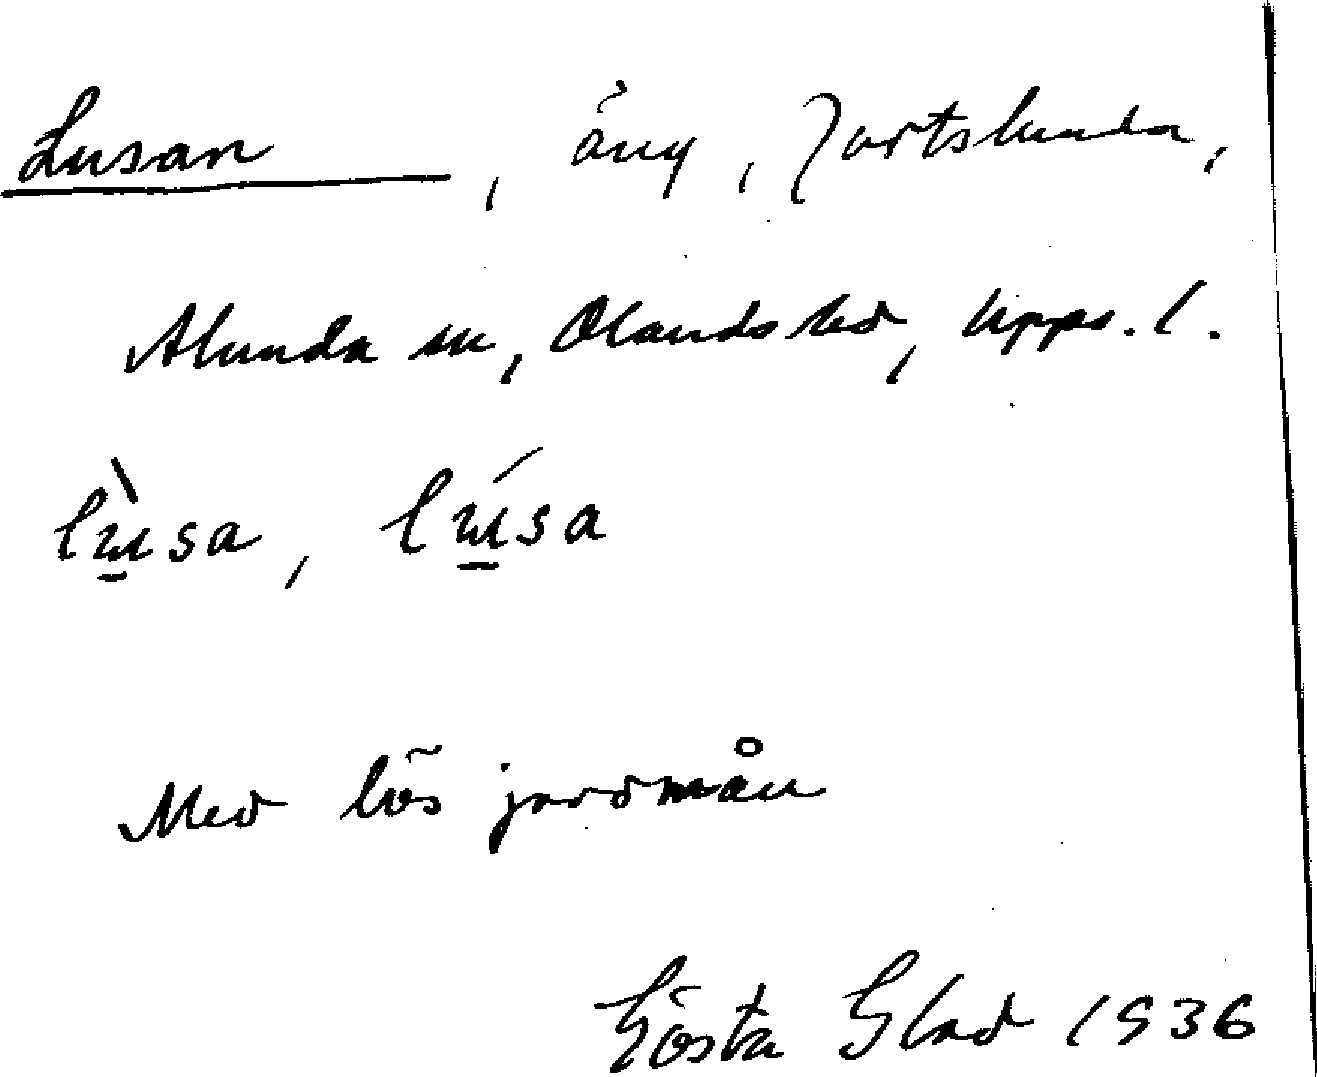 Lusan, äng, Jortslunda,
Alunda sn, Olands hd, Upps. l.
lùsa, lúsa
Med lös jordmån
Gösta Glad 1936